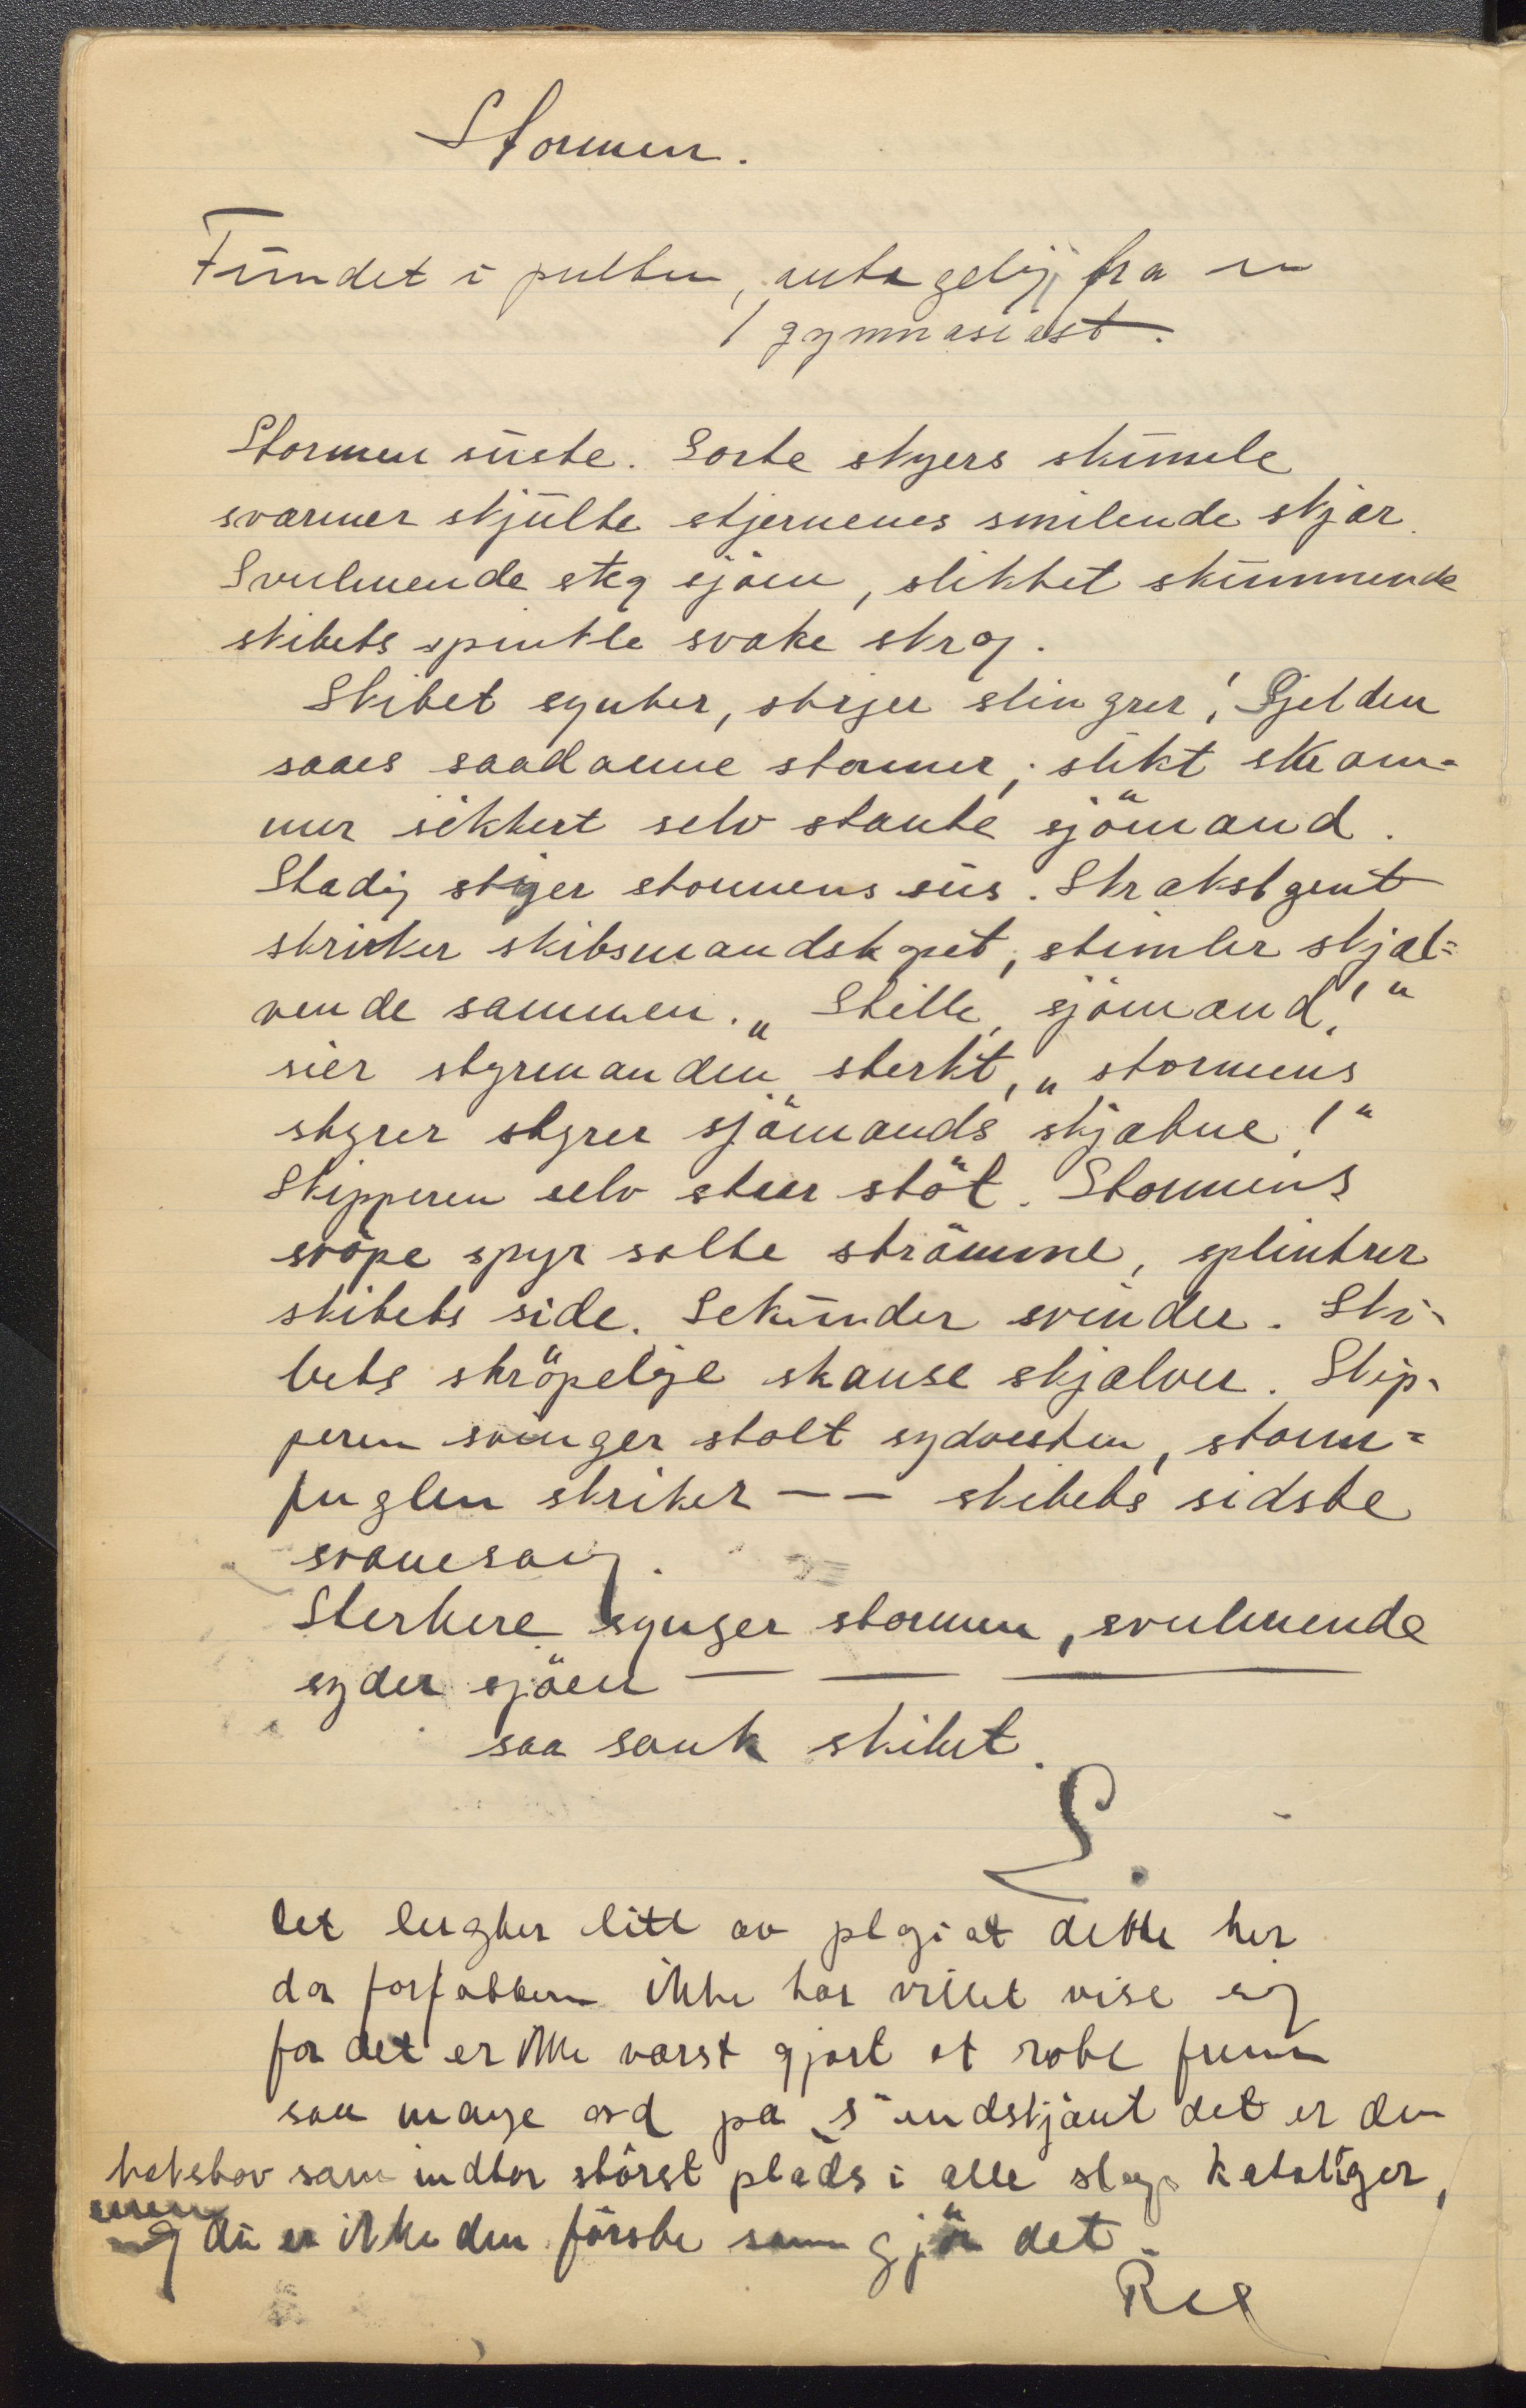 Stormen.
Fundet i pulten, antagelig fra en
1 gymnasiast.
Stormen suste. Sorte skyers skumle
sværmer skjulte stjernenes smilende skjær.
Svulmende steg sjöen, slikket skummende
skibets spinkle svake skrog.
Skibet synker, stiger slingrer! Sjelden
saaes saadanne stormer; slikt skram-
mer sikkert selv stante sjömænd.
Stadig stiger stormens sus. Strakst gent
skriker skibsmandskapet, stimler skjæl=
vende sammen. „Stille, sjömænd!“
sier styrmanden sterkt, „stormens
styrer styrer sjömands skjæbne!“
Skipperen selv staar stöt. Stormens
svöpe spyr salte strömme, splintrer
skibets side. Sekunder svinder. Ski-
bets skröpelige skanse skjælver. Skip-
peren svinger stolt sydvesten, storm=
fuglen skriker -- skibets sidste
svanesang.
Sterkere synger stormen, svulmende
syder sjöen — — —
saa sank skibet.
S.
Det lugter litt av plagiat dette her
da forfatteren ikke har villet vise sig
for det er ikke værst gjort at rote frem
saa mange ord paa s endskjönt det er den
bokstav som indtar störst plads i alle slags kataloger,
men du er ikke den förste som gjör det.
Red